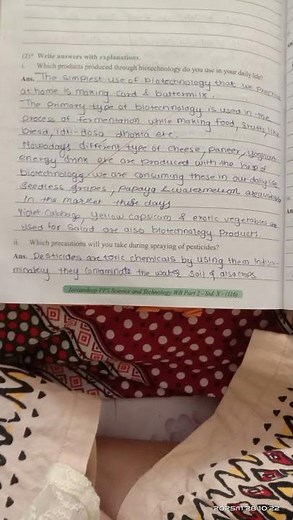 (2)* Write answers with explanations.
i. Which products produced through biotechnology do you use in your daily life?
Ans. The simplest use of Biotechnology that we practice
at home is making curd & buttermilk.
The primary type of biotechnology is used in the
process of fermentation while making food, stuffs, like
bread, Idli-dosa, dhokla etc.
Nowadays different type of cheese, paneer, yoghurt
energy drink etc are produced with the help of
biotechnology. we are consuming these in our daily life
Seedless grapes, papaya & watermelon are
in the market these days
cabbage, yellow capsium & exotic vegetables are
used for salad are also biotechnology products.
ii. Which precautions will you take during spraying of pesticides?
Ans. Pesticides are toxic chemicals by using them
they contaminate the water, soil & also crops
Science and Technology WB Part 2 - Std. X - (116)
2025-11-28 10:22